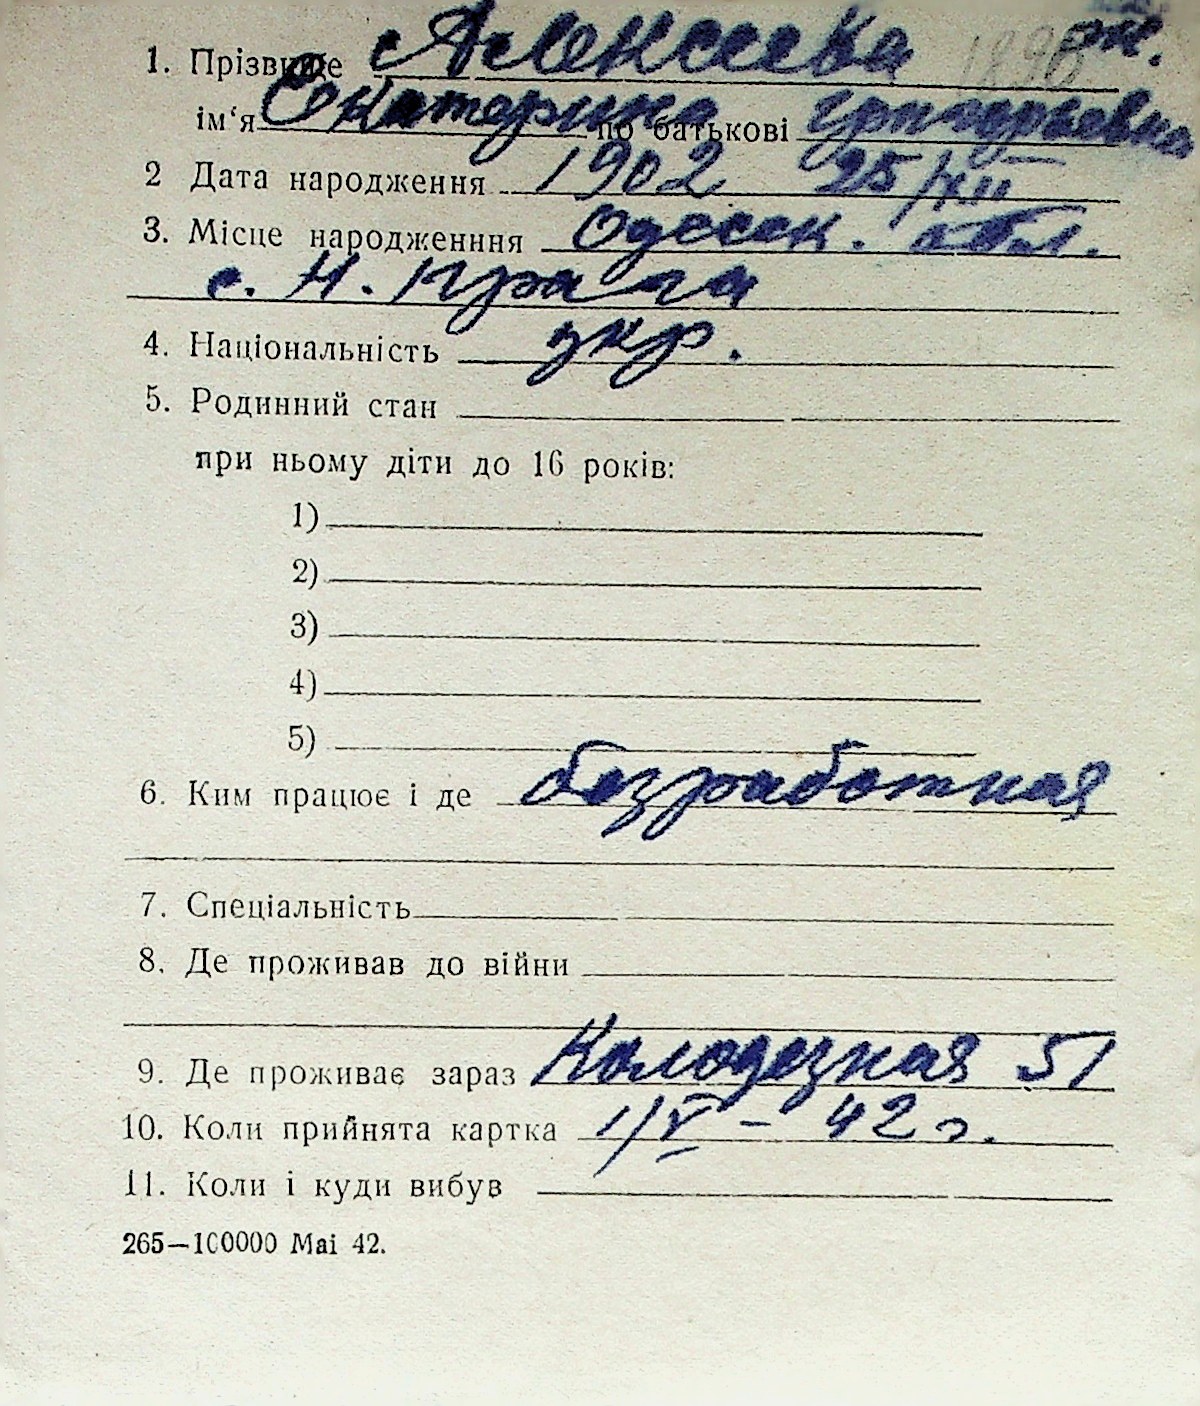 1. Прізвище Алексеева ж. 1896
ім‘я Екатерина по батькові Григорьевна
2 Дата народження 1902 25/XII
3. Місце народженння Одесск. обл.
с. Н. Прага
4. Національність укр.
5. Родинний стан
при ньому діти до 16 років:
1)
2)
3)
4)
5)
6. Ким працює і де безработная
7. Спеціальність
8. Де проживав до війни
9. Де проживає зараз Колодезная 51
10. Коли прийнята картка 1/V – 42 г.
11. Коли і куди вибув
265—100000 Mai 42.